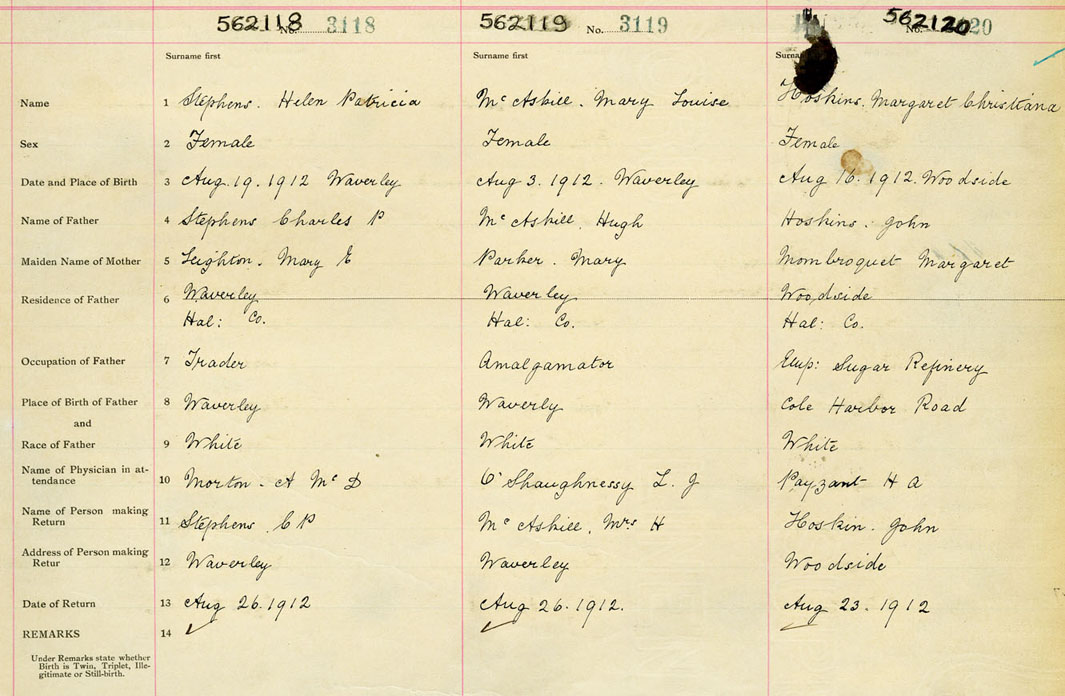 562118 No. 3118 562119 No. 3119 562120 No. 20
Surname first Surname first
Name 1 Stephens. Helen Patricia McAskill. Mary Louise Hoskins. Margaret Christiana
Sex 2 Female Female Female
Date and Place of Birth 3 Aug. 19. 1912 Waverley Aug 3. 1912. Waverley Aug 16. 1912. Woodside
Name of Father 4 Stephens Charles P McAskill, Hugh Hoskins. John
Maiden Name of Mother 5 Leighton. Mary E Parker. Mary Mombroquet Margaret
Residence of Father 6 Waverley Waverley Woodside
Hal: Co. Hal: Co. Hal: Co.
Occupation of Father 7 Trader Amalgamator Emp: Sugar Refinery
Place of Birth of Father 8 Waverley Waverly Cole Harbor Road
and
Race of Father 9 White White White
Name of Physician in at-
tendance 10 Morton - A McD O'Shaughnessy L. J Payzant H A
Name of Person making
Return 11 Stephens C P McAskill, Mrs H Hoskin. John
Address of Person making
Retur 12 Waverley Waverley Woodside
Date of Return 13 Aug 26. 1912 Aug 26. 1912. Aug 23. 1912
REMARKS 14
Under Remarks state whether
Birth is Twin, Triplet, Ille-
gitimate or Still-birth.